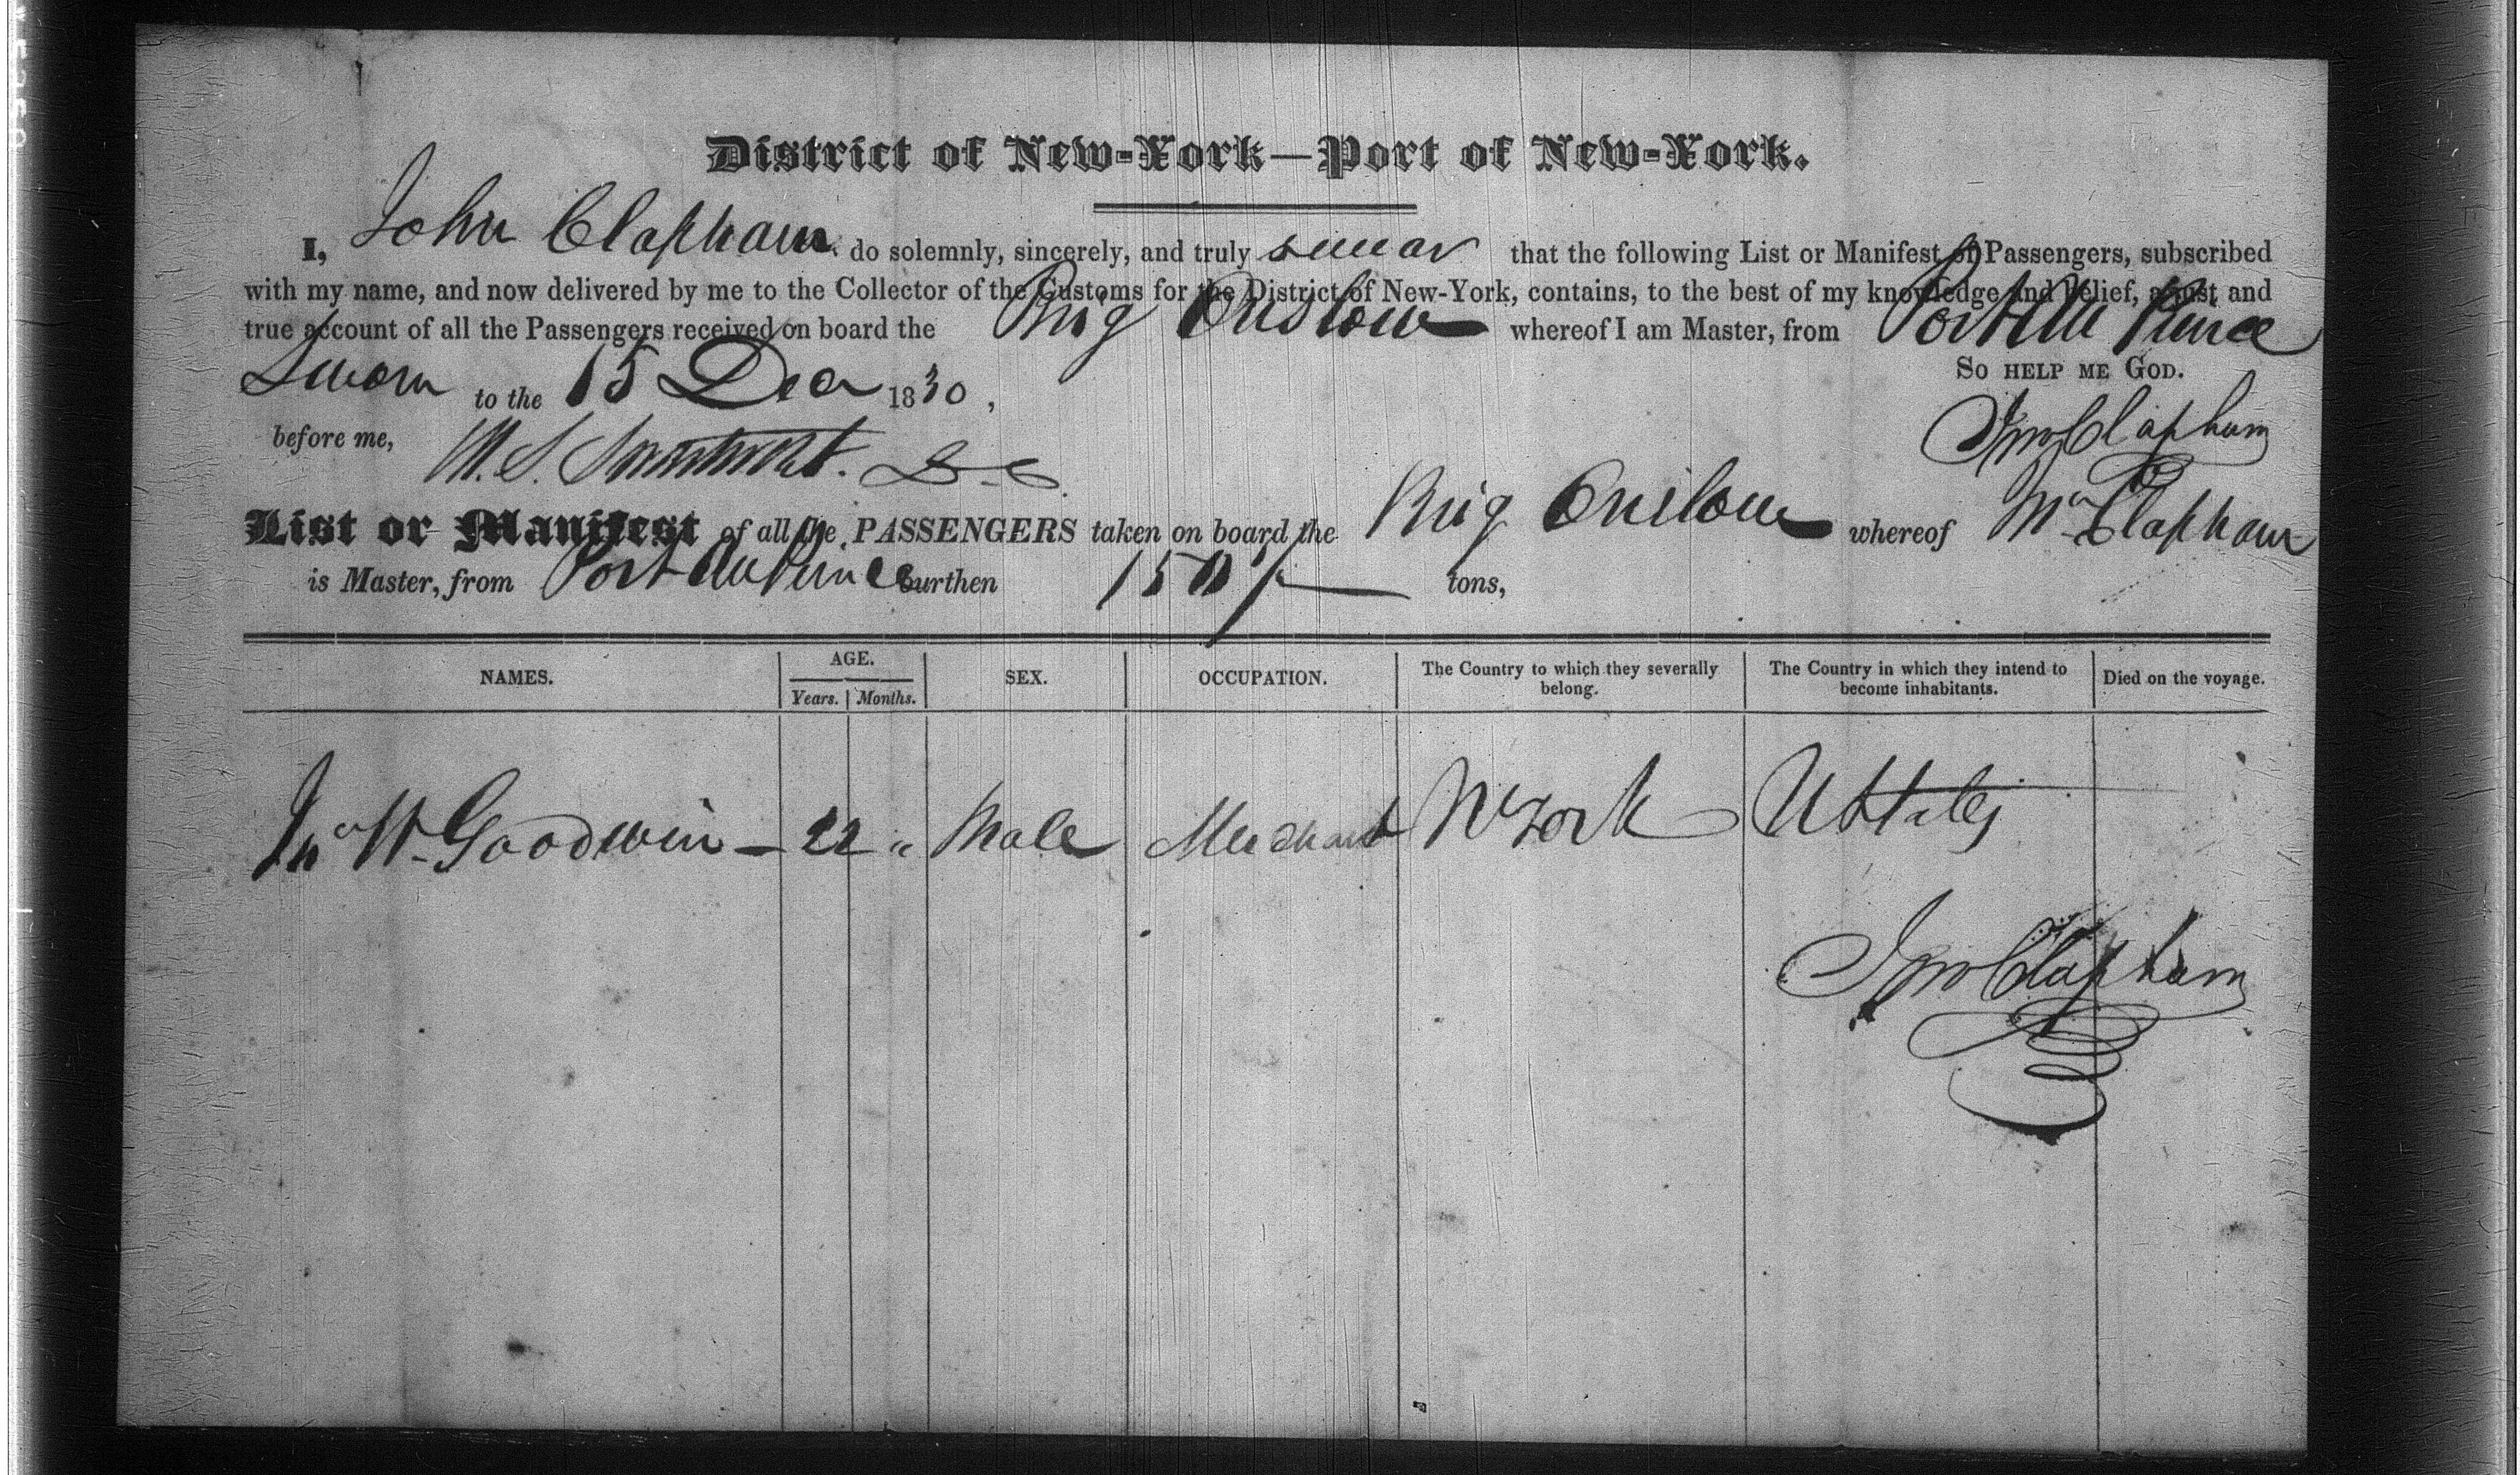 District of New-York—Port of New-York.
I, John Clapham do solemnly, sincerely, and truly swear that the following List or Manifest of Passengers, subscribed
with my name, and now delivered by me to the Collector of the Customs for the District of New-York, contains, to the best of my knowledge and belief, a just and
true account of all the Passengers received on board the Brig Onslow whereof I am Master, from Port Au Prince
So HELP ME GOD.
Sworn to the 15 Dec 1830,
Jno Clapham
before me, M. S. Swartwout. D.C.
List or Manifest of all the PASSENGERS taken on board the Brig Onslow whereof Mr Clapham
is Master, from Port Au Prince burthen 150 tons,
NAMES. AGE. SEX. OCCUPATION. The Country to which they severally belong. The Country in which they intend to become inhabitants. Died on the voyage.
Years. Months.
Jno W. Goodwin — 22 " Male Merchant N York U States
Jno Clapham